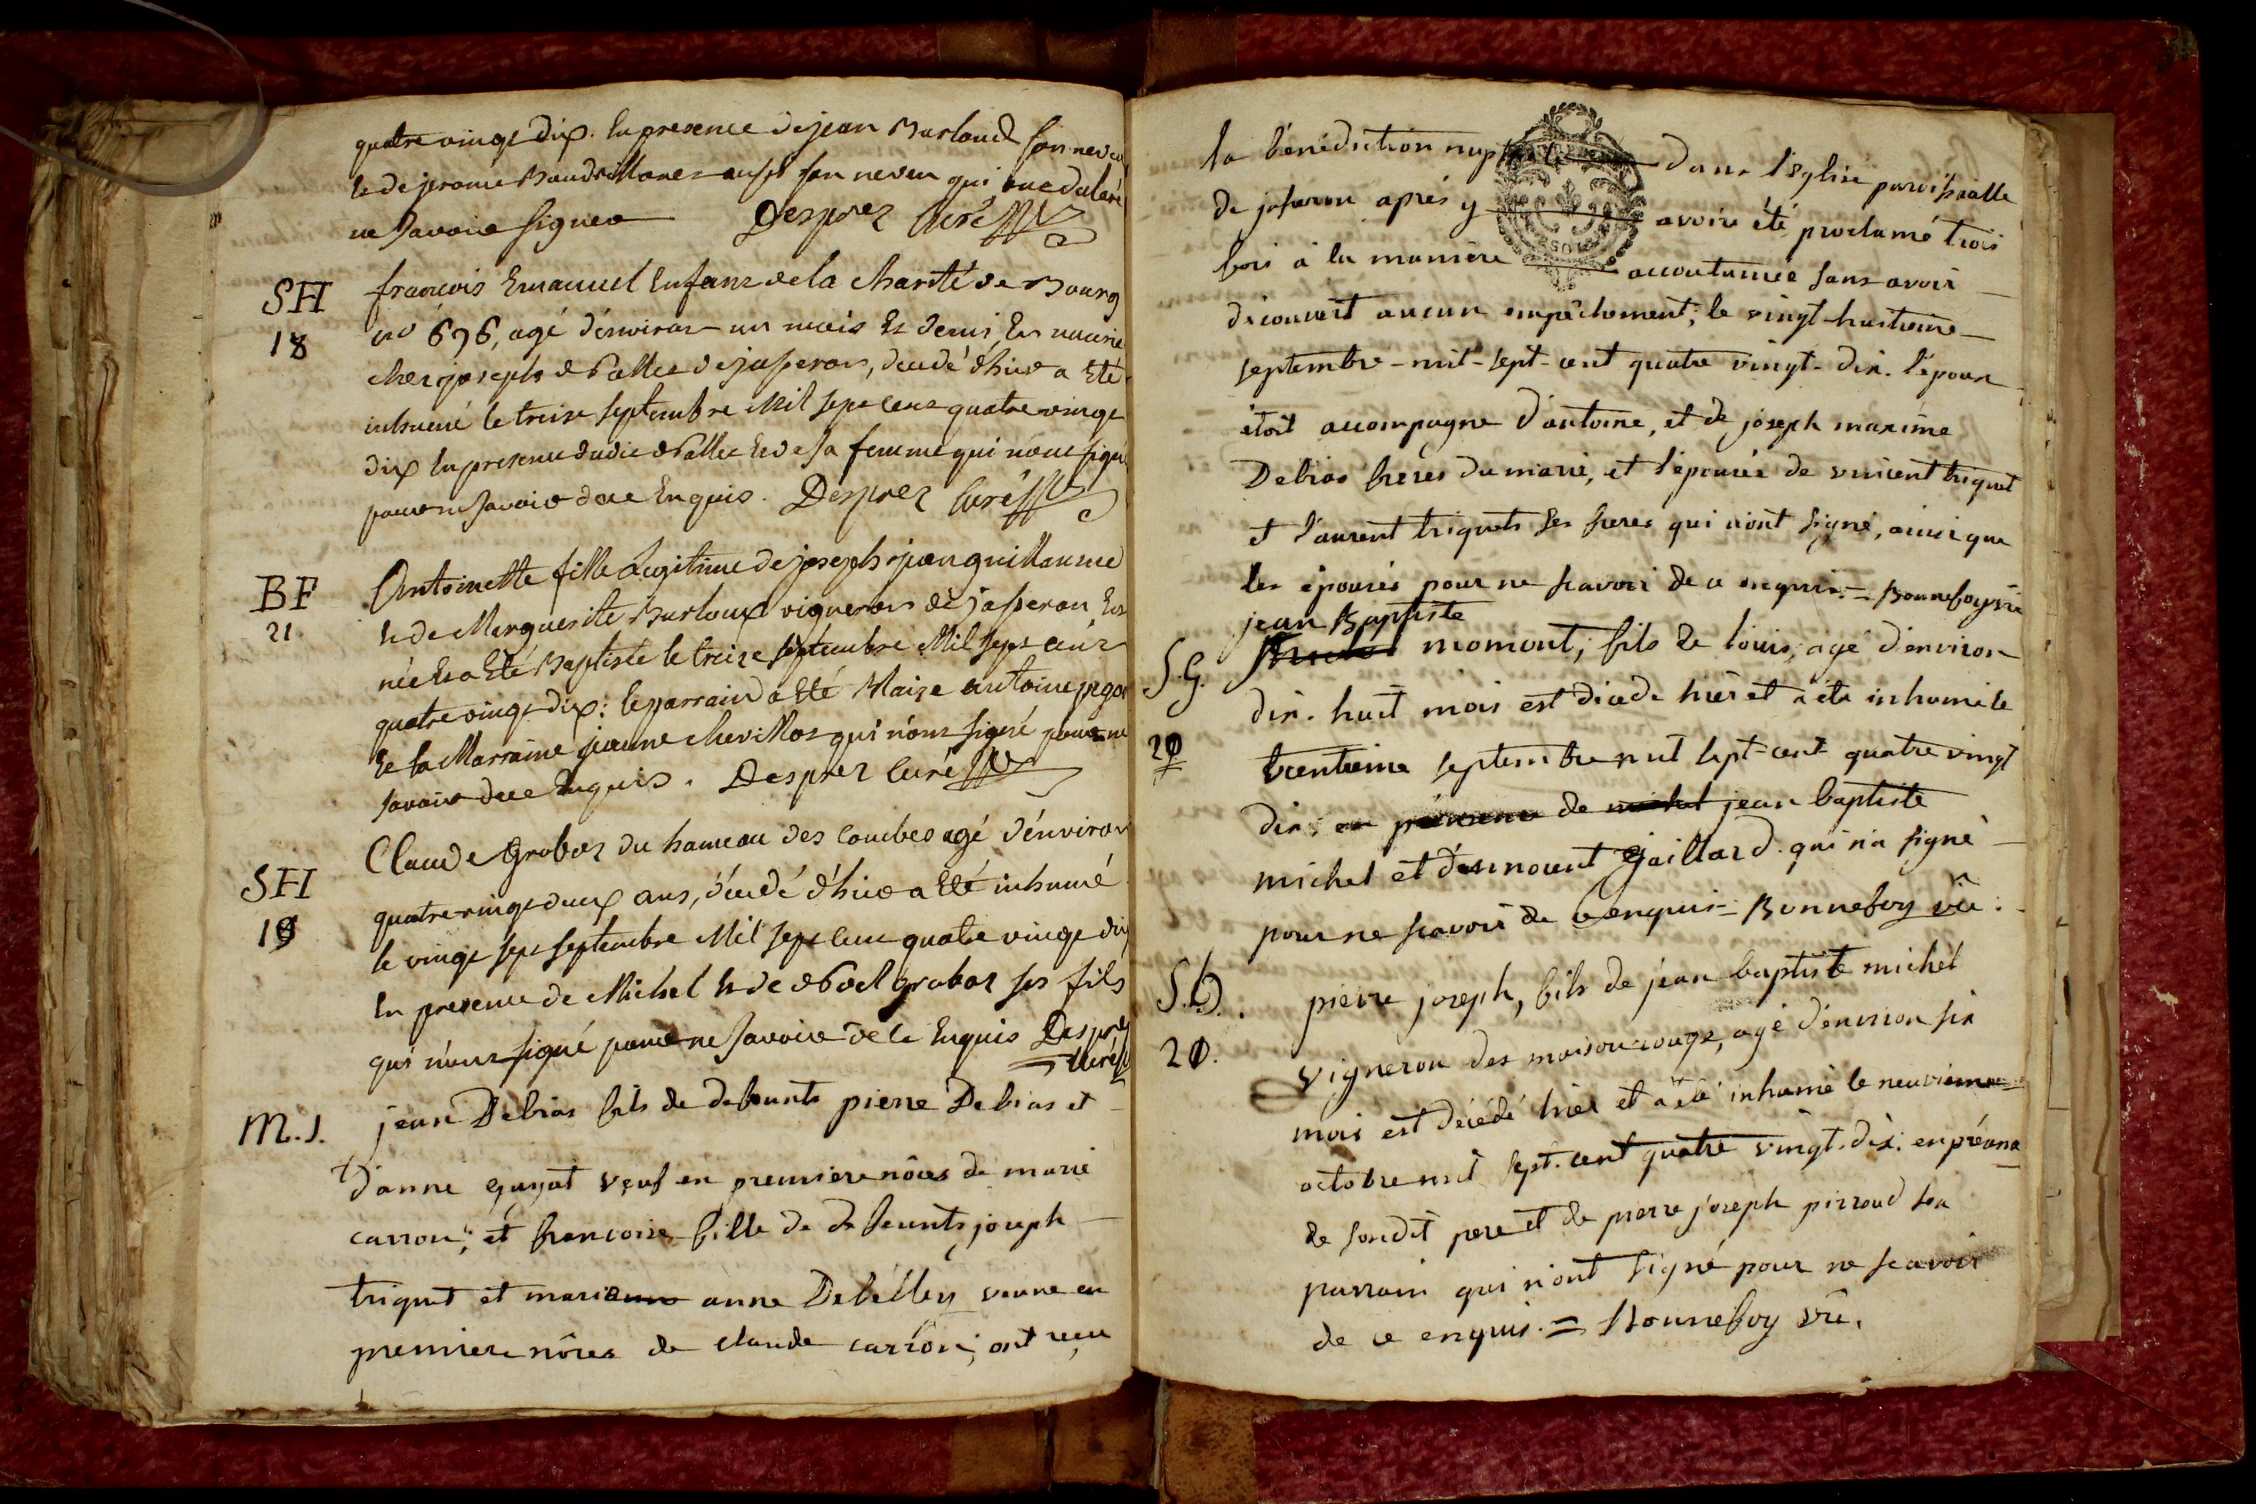 quatre vingt dix. En presence de jean Burloud son neveu
et de jerome Baudrillones aussi son neveu qui ont déclaré
ne savoir signer Desprez Curé
SH françois Emanuel Enfant de la Charité de Bourg
18 no 696, agé d'environ un mois Et demi, En nourrice
chez joseph Pallee de jasseron, decedé d'hier a Eté
inhumé le treize septembre Mil sept cent quatre vingt
dix En presence dudit Pallee Et de sa femme qui n'ont signé
pour ne savoir de ce Enquis. Desprez Curé
BF Antoinette fille Legitime de joseph jean guillaume
21 et de Marguerite Burloux vigneron de jasseron Est
née Et a Eté Baptisée le treize septembre Mil sept cent
quatre vingt dix: le parrain a Eté Blaize antoine
Et la Marraine jeanne chevillor qui n'ont signé pour ne
savoir de ce Enquis. Desprez Curé
SH Claude Groboz du hameau des Combes agé d'environ
quatre vingt deux ans, decedé d'hier a Eté inhumé
19 le vingt sept septembre Mil sept cent quatre vingt dix
En presence de Michel Et de Noel groboz ses fils
qui n'ont signé pour ne savoir de ce Enquis Desprez
Curé
M.J. jean Debias fils de defunts pierre Debias et
d'anne guyat veuf en premiere nôces de marie
carron; et francoise fille de defeunts joseph
triquet et marie anne Debelley veuve en
premiere nôces de claude carron; ont reçu
la bénédiction nuptiale dans l'église paroissialle
de jasseron aprés y avoir été proclamé trois
fois à la maniere accoutumée sans avoir
découvert aucun empêchement; le vingt-huitieme
septembre-mil-sept-cent quatre vingt-dix. l'époux
étoit accompagné d'antoine, et de joseph maxime
Debias freres du marié, et l'épousée de vincent triquet
et l'aurent triquets ses freres qui n'ont signé, ainsi que
les épousés pour ne scavoir de ce enquis = Bonnefoy vic
jean Baptiste
S.G. momont, fils de louis, agé d'environ
dix-huit mois est décédé hier et a été inhumé le
20 trentieme septembre mil sept-cent quatre vingt
dix, en présence de michel jean baptiste
michel et d'esnnouent gaillard qui n'a signé
pour ne scavoir de ce enquis = Bonnefoy vic.
S.G. pierre joseph, fils de jean baptiste michel
20. vigneron des maison rouge, agé d'environ six
mois est décédé hier et a été inhumé le neuvieme
octobre mil sept-cent quatre vingt-dix. en présence
de sondit pere et de pierre joseph pirroud son
parrain qui n'ont signé pour ne scavoir
de ce enquis. = Bonnefoy vic.